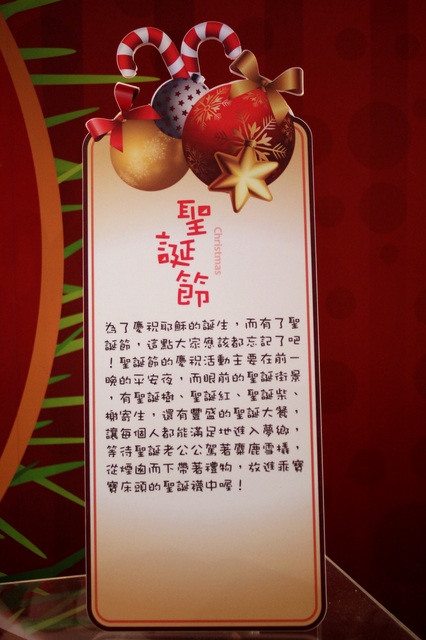 聖誕節
Christmas
為了慶祝耶穌的誕生，而有了聖
誕節，這點大家應該都忘記了吧
！聖誕節的慶祝活動主要在前一
晚的平安夜，而眼前的聖誕街景
，有聖誕樹、聖誕紅、聖誕柴、
槲寄生，還有豐盛的聖誕大餐，
讓每個人都能滿足地進入夢鄉，
等待聖誕老公公駕著麋鹿雪橇，
從煙囪而下帶著禮物，放進乖寶
寶床頭的聖誕襪中喔！